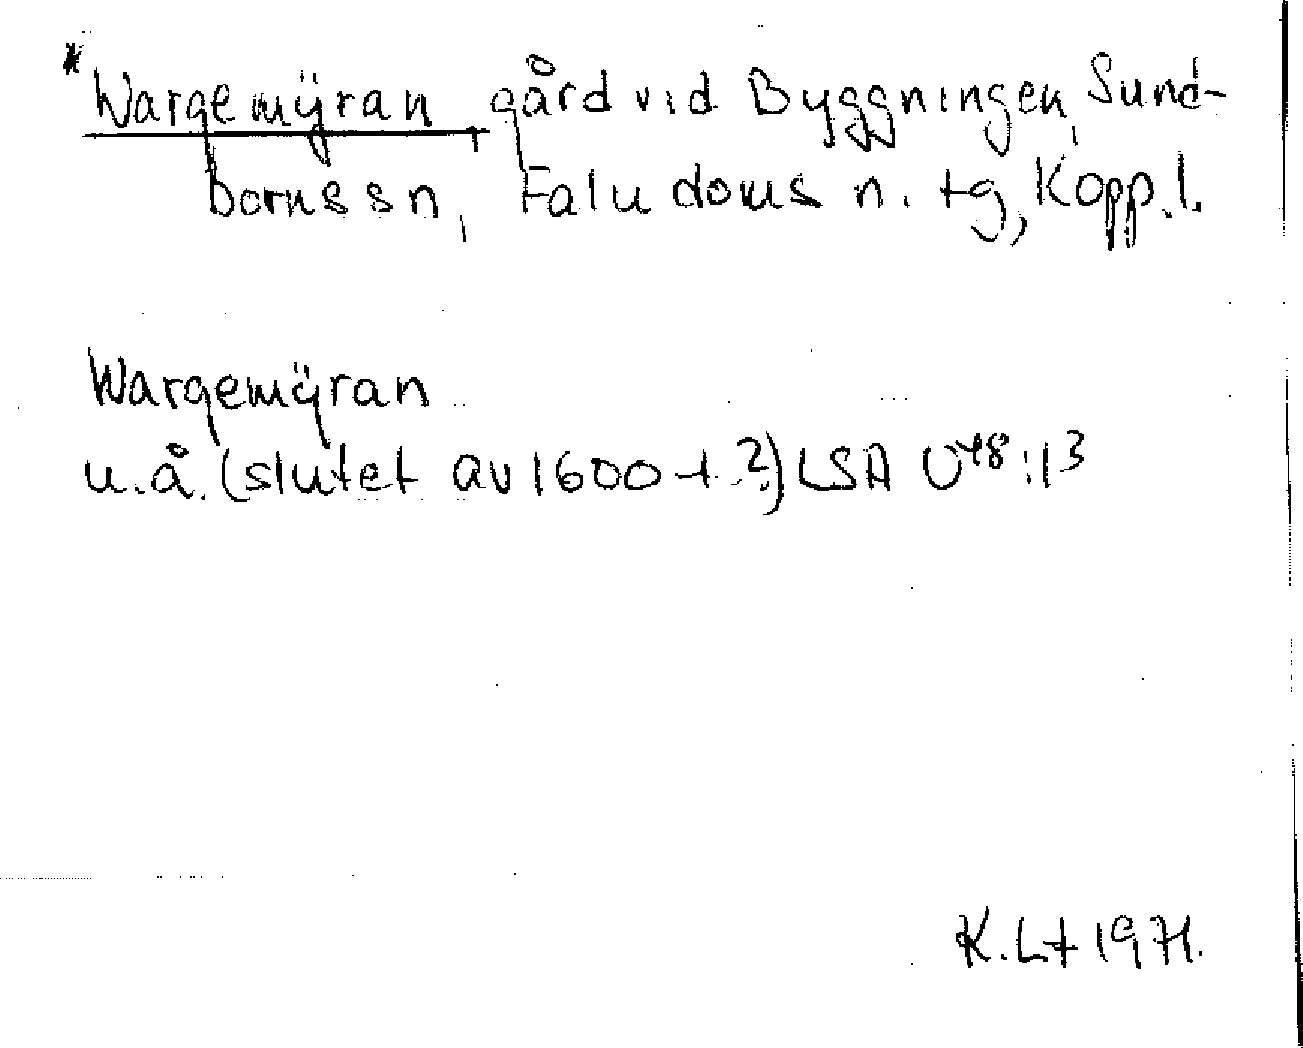 *Wargemÿran, gård vid Byggningen, Sund-
borns sn, Falu doms n. tg, Kopp. l.
Wargemÿran
u.å. (slutet av 1600-t. ?) LSA U48:13
K.Lt 1971.